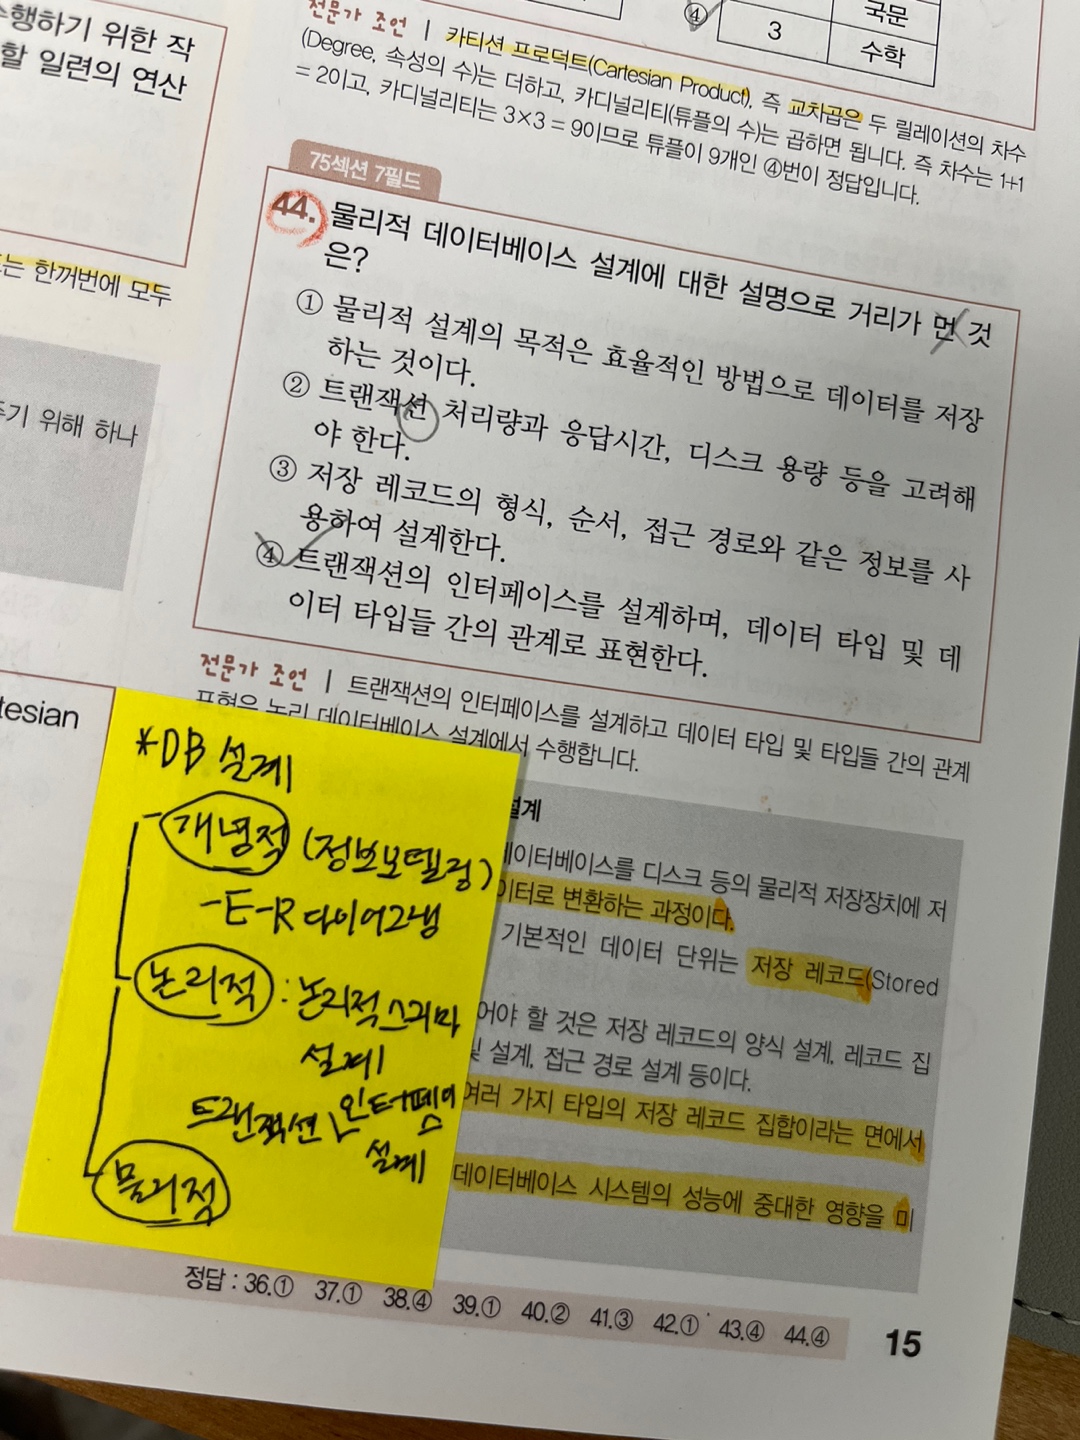 수행하기 위한 작
할 일련의 연산
는 한꺼번에 모두
주기 위해 하나
tesian
④
3
국문
수학
전문가 조언 | 카티션 프로덕트(Cartesian Product), 즉 교차곱은 두 릴레이션의 차수
(Degree, 속성의 수)는 더하고, 카디널리티(튜플의 수)는 곱하면 됩니다. 즉 차수는 1+1
= 2이고, 카디널리티는 3×3 = 9이므로 튜플이 9개인 ④번이 정답입니다.
75섹션 7필드
44. 물리적 데이터베이스 설계에 대한 설명으로 거리가 먼 것
은?
① 물리적 설계의 목적은 효율적인 방법으로 데이터를 저장
하는 것이다.
② 트랜잭션 처리량과 응답시간, 디스크 용량 등을 고려해
야 한다.
③ 저장 레코드의 형식, 순서, 접근 경로와 같은 정보를 사
용하여 설계한다.
④ 트랜잭션의 인터페이스를 설계하며, 데이터 타입 및 데
이터 타입들 간의 관계로 표현한다.
전문가 조언 | 트랜잭션의 인터페이스를 설계하고 데이터 타입 및 타입들 간의 관계
표현은 논리 데이터베이스 설계에서 수행합니다.
*DB 설계
개념적 (정보모델링)
-E-R 다이어그램
논리적 : 논리적 스키마
설계
트랜잭션 인터페이스
설계
물리적
설계
데이터베이스를 디스크 등의 물리적 저장장치에 저
이터로 변환하는 과정이다.
기본적인 데이터 단위는 저장 레코드(Stored
어야 할 것은 저장 레코드의 양식 설계, 레코드 집
및 설계, 접근 경로 설계 등이다.
여러 가지 타입의 저장 레코드 집합이라는 면에서
데이터베이스 시스템의 성능에 중대한 영향을 미
정답 : 36.① 37.① 38.④ 39.① 40.② 41.③ 42.① 43.④ 44.④
15